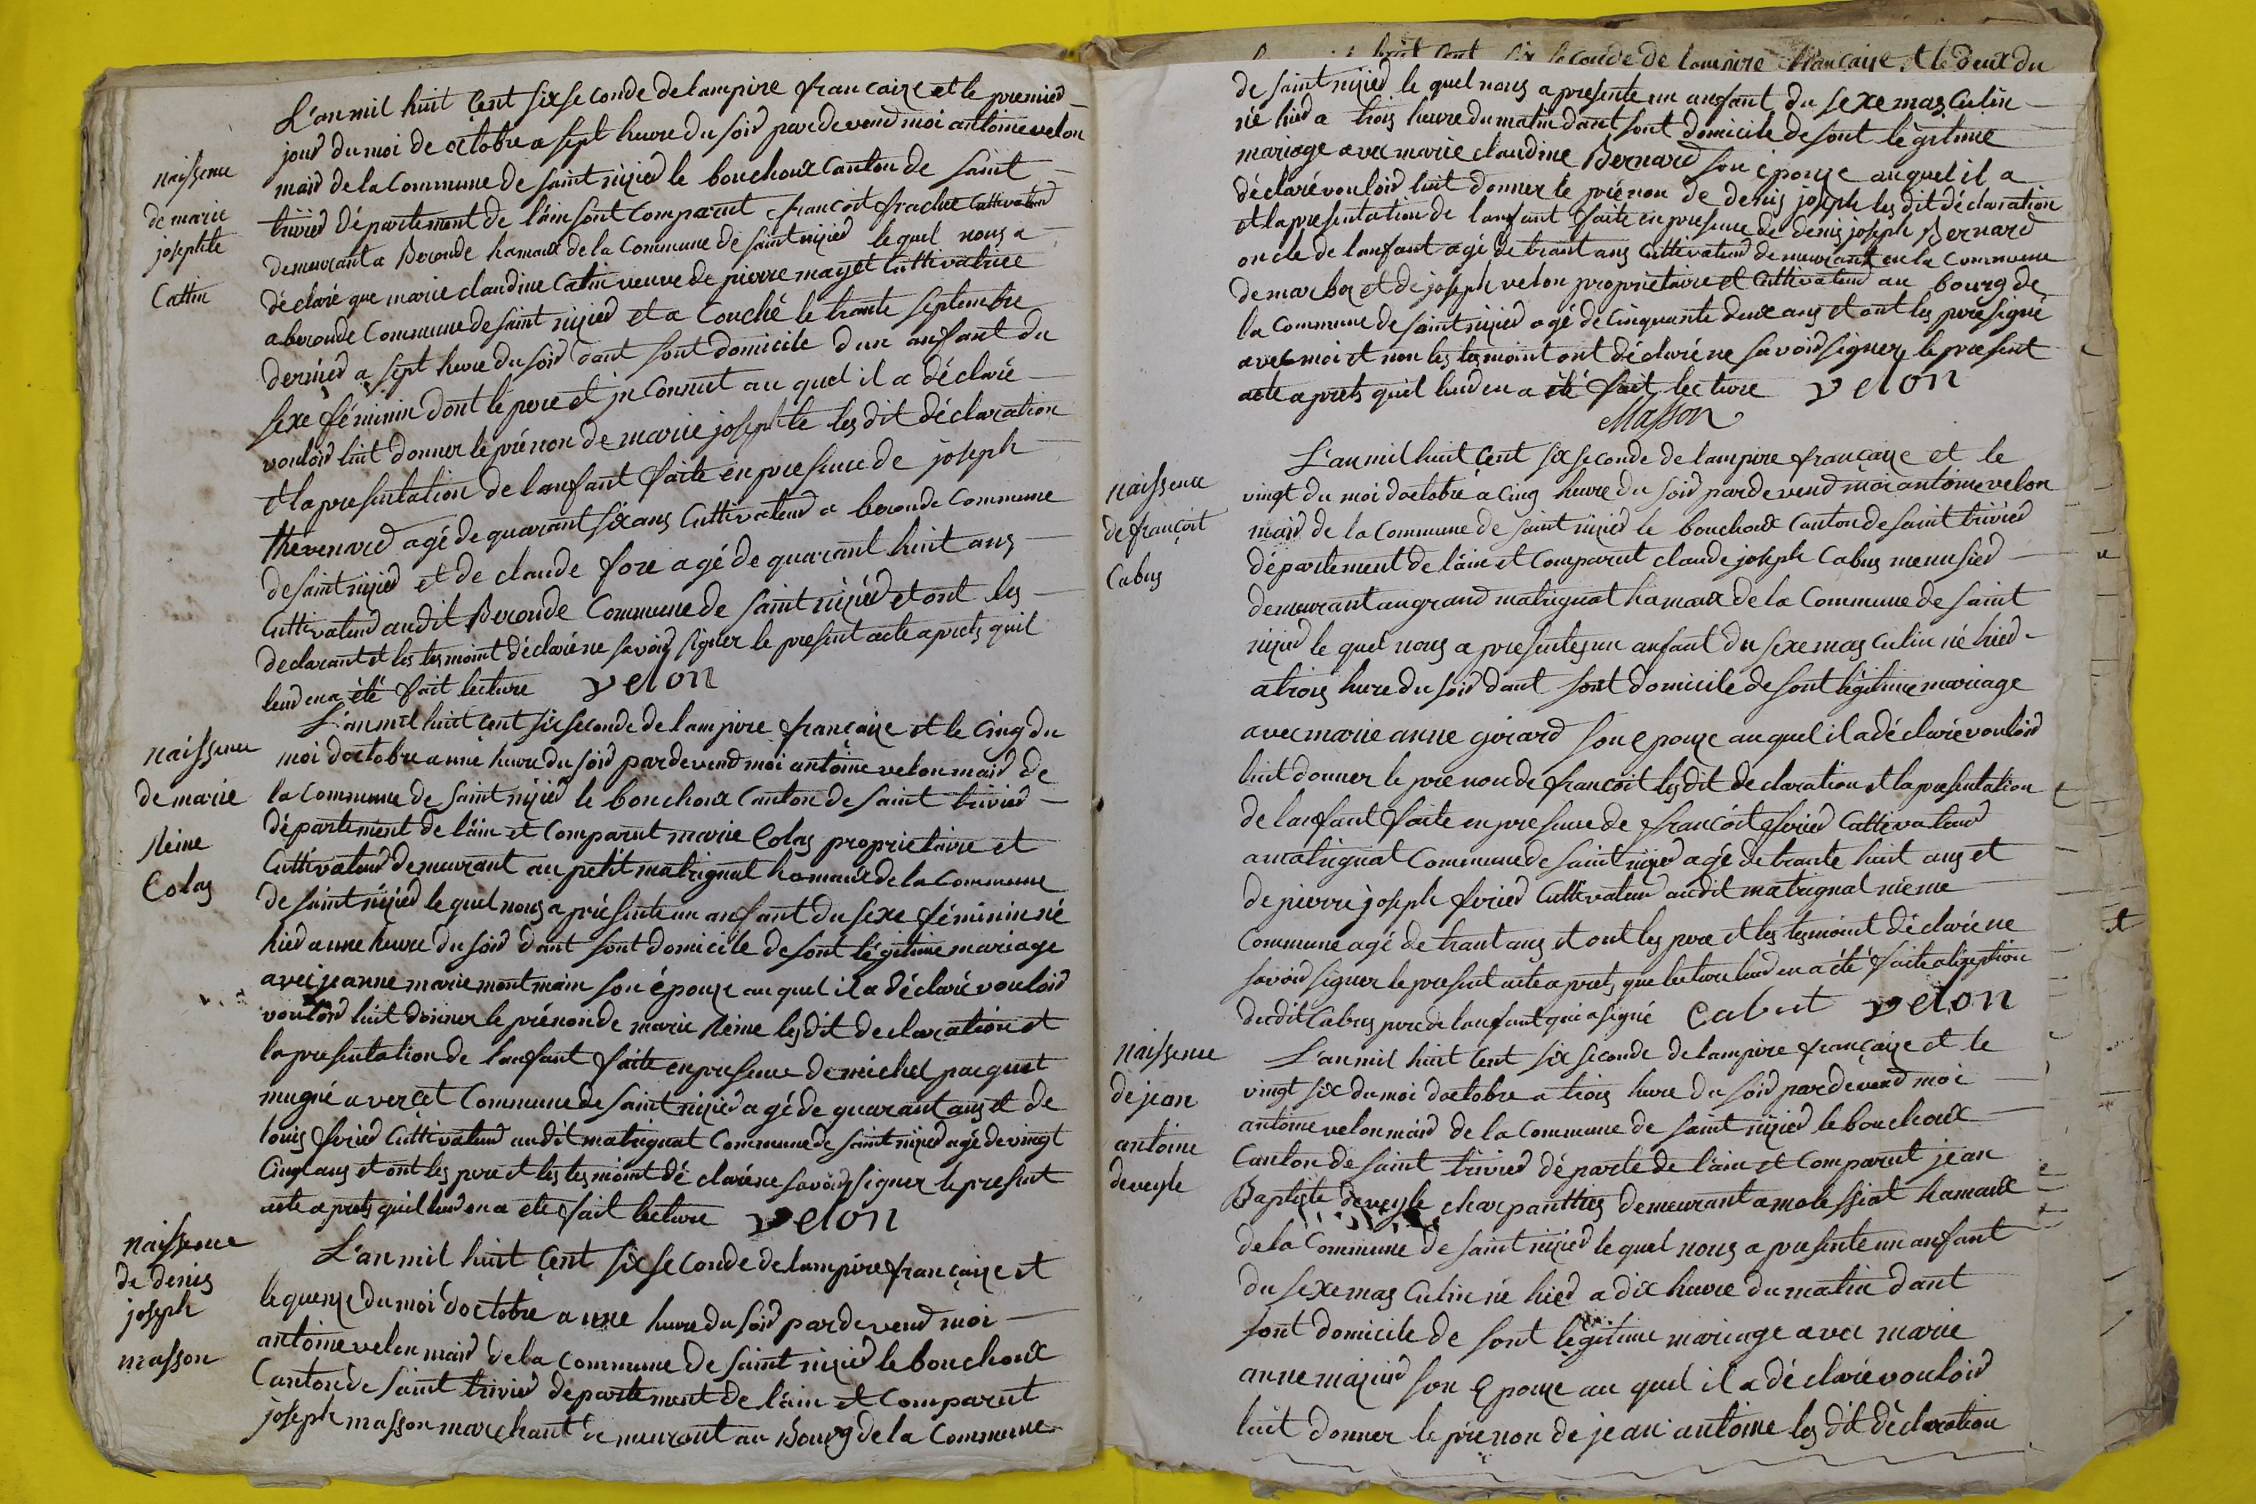 L'an mil huit cent six seconde de lampire francaize et le premier
jour du moi de octobre a sept heure du soir pardevend moi antoine velon
naissence
mair de la Commune de saint nizier le bouchoux Canton de saint
de marie
trivier département de l'ain sont Comparut françoit frachet Cuttivateur
josephte
demeurant a Beronde hamaux de la Commune de saint nizier lequel nous a
Cattin
déclaré que marie claudine Catin veuve de pierre mayet Cuttivatrice
a beronde Commune de saint nizier et a Couché le trante septembre
dernier a sept heure du soir dant sont domicile dun anfant du
sexe féminin dont le pere et in Connut au quel il a déclaré
vouloir luit donner le prénon de marie josephte les dit déclaration
et la presentation de lanfant faite en presence de joseph
thevenard agé de quarant six ans Cuttivateur a beronde Commune
de saint nizier et de claude fore agé de quarant huit ans
Cuttivateur audit Beronde Commune de saint nizier et ont les
declarant et les tesmoint déclaré ne savoir signer le present acte aprets quil
leur en a été fait lecture velon
L'an mil huit cent six seconde de lampire françaize et le Cinq du
naissence
moi doctobre a une heure du soir pardevend moi antoine velon mair de
de marie
la Commune de saint nizier le bouchoux Canton de saint trivier
Reine
département de l'ain et Comparut marie Colas proprietaire et
Colas
Cuttivateur demeurant au petit matrignat hamaux de la Commune
de saint nizier le quel nous a présente un anfant du sexe féminin né
hier a une heure du soir dant sont domicile de sont légitime mariage
avec jeanne marie montmain son épouze au quel il a déclaré vouloir
vouloir luit donner le prénon de marie Reine les dit declaration et
la presentation de lanfant faite en presence de michel pacquet
mugné a verçet Commune de saint nizier agé de quarant ans et de
louis ferier Cuttivateur audit matrignat Commune de saint nizier agé de vingt
Cinq ans et ont les pere et les tesmoint dé claré ne savoir signer le present
acte aprets quil leur en a été fait lecture velon
naissence
L'an mil huit Cent six seconde de lampire françaize et
de denis
le quenze du moi doctobre a une heure du soir pardevend moi
joseph
antoine velon mair de la Commune de saint nizier le bouchoux
masson
Canton de saint trivier departement de l'ain et Comparut
joseph masson marchant demeurant au Bourg de la Commune
six seconde de lampire françaize et le deux du
de saint nizier le quel nous a presente un anfant du sexe mas Culin
né hier a trois heure du matin dant sont domicile de sont légitime
mariage avec marie claudine Bernard son épouze au quel il a
déclaré vouloir luit donner le prénon de denis joseph les dit déclaration
et la presentation de lanfant faite en presence de denis joseph Bernard
oncle de lanfant agé de trant ans Cuttivateur demeurant en la Commune
de marboz et de joseph velon proprietaire et Cuttivateur au bourg de
la Commune de saint nizier agé de Cinquante deux ans et ont les pere signé
avec moi et non les tesmoint ont déclaré ne savoir signer le present
acte aprets quil leur en a été fait lecture velon
Masson
L'an mil huit Cent six seconde de lampire françaize et le
naissence
vingt du moi doctobre a Cinq heure du soir pardevend moi antoine velon
de françoit
mair de la Commune de saint nizier le bouchoux Canton de saint trivier
Cabus
département de l'ain et Comparut claude joseph Cabus menusier
demeurant au grand matrignat hamaux de la Commune de saint
nizier le quel nous a presentes un anfant du sexe mas Culin né hier
a trois hure du soir dant sont domicile de sont légitime mariage
avec marie anne girard son epouze au quel il a déclaré vouloir
luit donner le prenon de françoit les dit declaration et la presentation
de lanfant faite en presence de françoit ferier Cuttivateur
a matrignat Commune de saint nizier agé de trante huit ans et
de pierre joseph ferier Cuttivateur audit matrignat méme
Commune agé de trant ans et ont les pere et les tesmoint déclaré ne
savoir signer le present acte aprets que lecture leur en a été faite alizeption
dudit Cabus pere de lanfant qui a signé Cabut velon
naissence
L'an mil huit Cent six seconde de lampire françaize et le
de jean
vingt six du moi doctobre a trois hure du soir pardevend moi
antoine
antoine velon mair de la Commune de saint nizier le bouchoux
deveyle
Canton de saint trivier départe de l'ain et Comparut jean
Baptiste deveyle charpanttiez demeurant a molessiat hamaux
de la Commune de saint nizier le quel nous a presente un anfant
du sexe mas Culin né hier a dix heure du matin dant
sont domicile de sont légitime mariage avec marie
anne mazuir son Epouze au quel il a déclaré vouloir
luit donner le prénon de jean antoine les dit déclaration